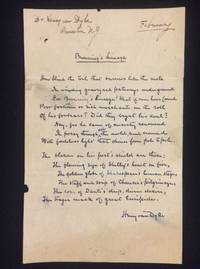 Dr. Henry van Dyke
Princeton N.J.
February
Browning's Lineage
How blind the toil that burrows like the mole
In winding graveyard pathways underground
For Browning's lineage! What if men have found
Poor footmen or rich merchants on the roll
Of his forbears? Did they beget his soul?
Nay, for he came of ancestry renowned
In poesy through all the world, and crowned
With fadeless light that shines from pole to pole.
The blazons on his poet's shield are these:
The flaming sign of Shelley's heart on fire,
The golden globe of Shakespeare's human stage,
The staff and scrip of Chaucer's pilgrimage,
The rose of Dante's deep, divine desire,
The tragic mask of great Euripides.
Henry van Dyke